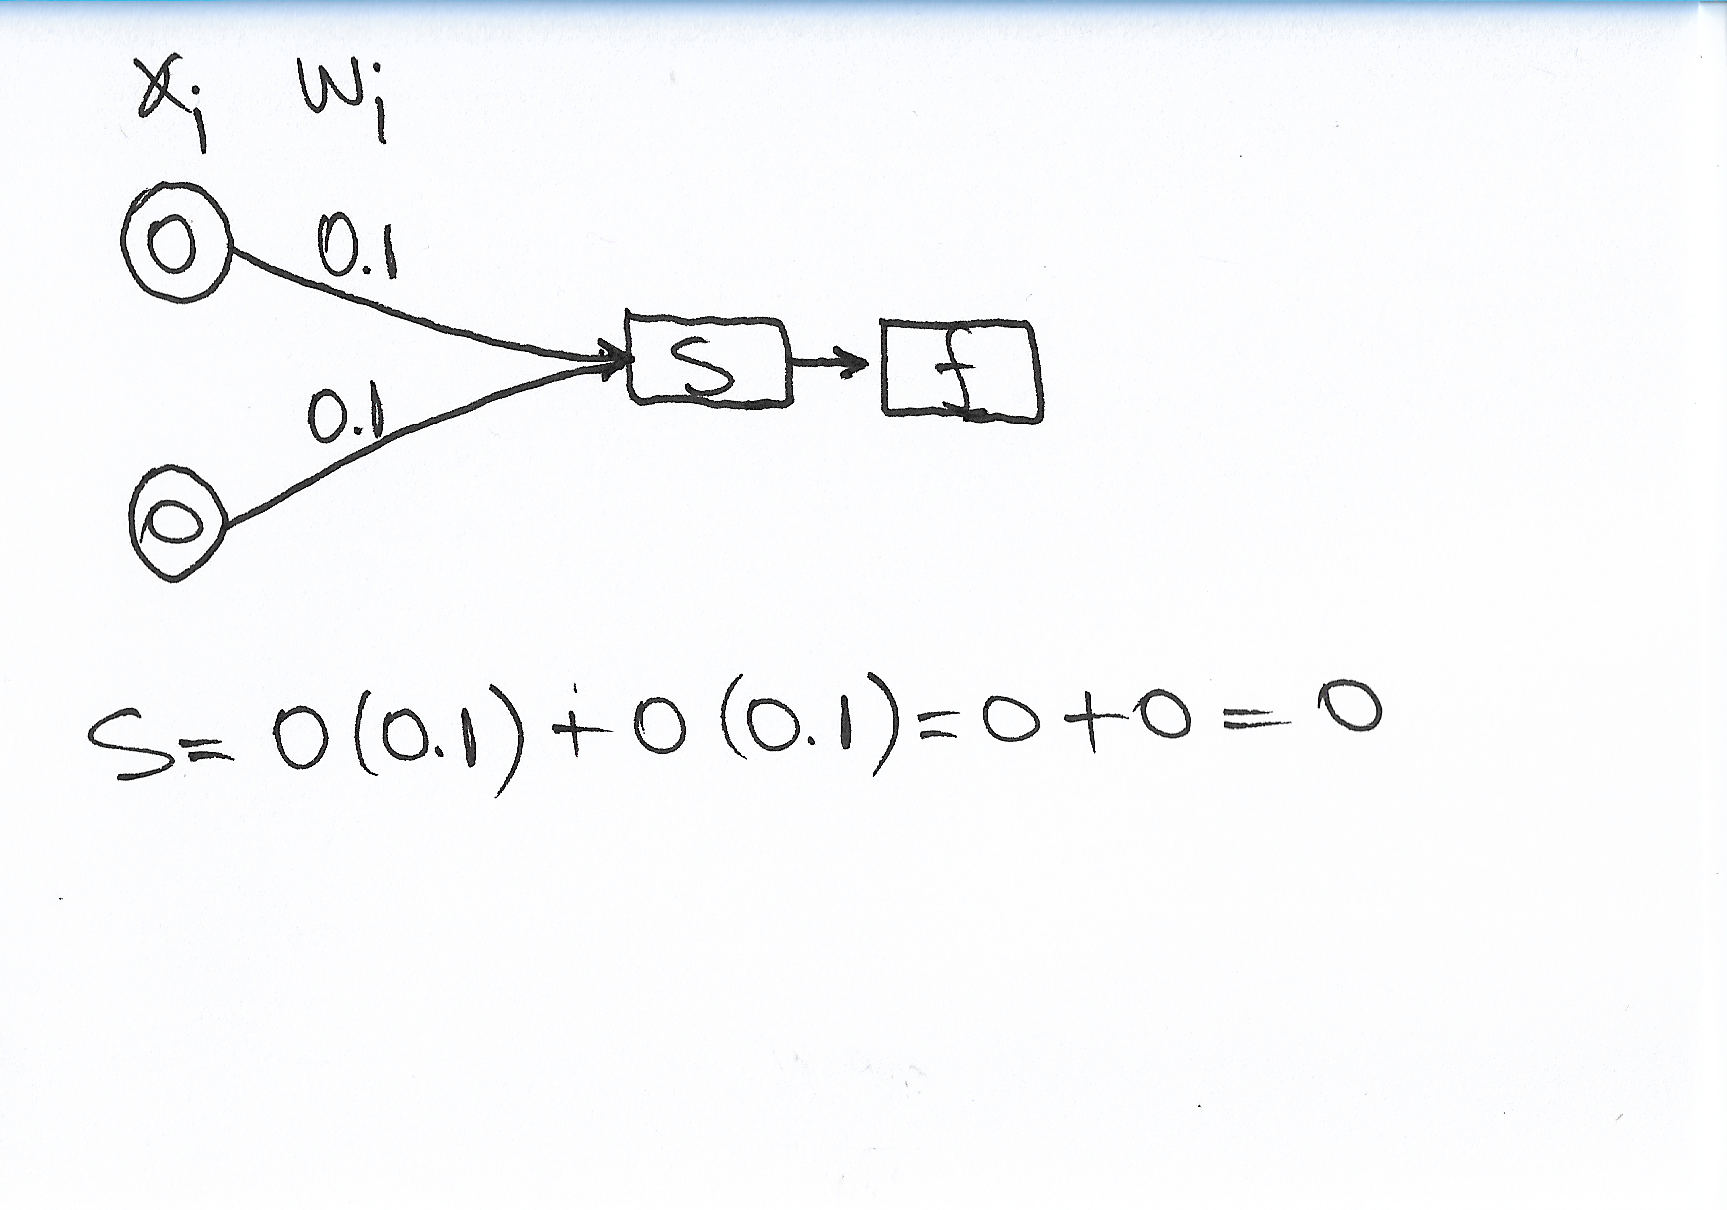 xi wi
0 0.1
S f
0.1
0
S= 0(0.1)+0(0.1)=0+0=0